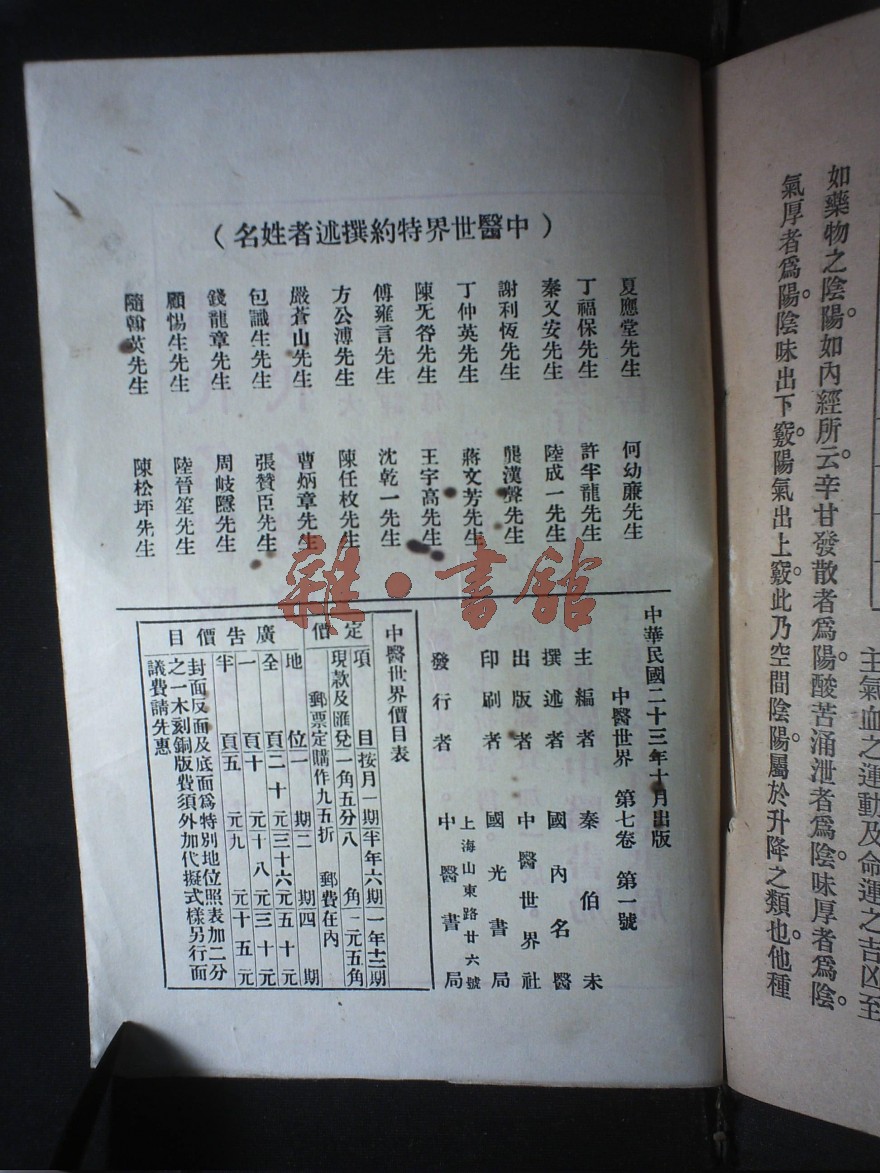 如藥物之陰陽。如內經所云。辛甘發散者爲陽。酸苦涌泄者爲陰。味厚者爲陰。
氣厚者爲陽。陰味出下竅。陽氣出上竅。此乃空間陰陽。屬於升降之類也。他種
主氣血之運動及命運之吉凶至
（中醫世界特約撰述者姓名）
夏應堂先生
丁福保先生
秦又安先生
謝利恆先生
丁仲英先生
陳无咎先生
傅雍言先生
方公溥先生
嚴蒼山先生
包識生先生
錢龍章先生
顧惕生先生
隨翰英先生
何幼廉先生
許半龍先生
陸成一先生
龔漢聲先生
蔣文芳先生
王宇高先生
沈乾一先生
陳任枚先生
曹炳章先生
張贊臣先生
周岐隱先生
陸晉笙先生
陳松坪先生
中華民國二十三年十月出版
中醫世界 第七卷 第一號
主編者 秦伯未
撰述者 國內名醫
出版者 中醫世界社
印刷者 國光書局
上海山東路廿六號
發行者 中醫書局
中醫世界價目表
定價
項目 按月一期 半年六期 一年十二期
現款及匯兌 一角五分 八角 一元五角
郵票定購作九五折 郵費在內
廣告價目
地位 一期 二期 四期
全頁 二十元 三十六元 五十元
一頁 十元 十八元 三十元
半頁 五元 九元 十五元
封面反面及底面爲特別地位照表加二分
之一木刻銅版費須外加代擬式樣另行面
議費請先惠
雜·書館